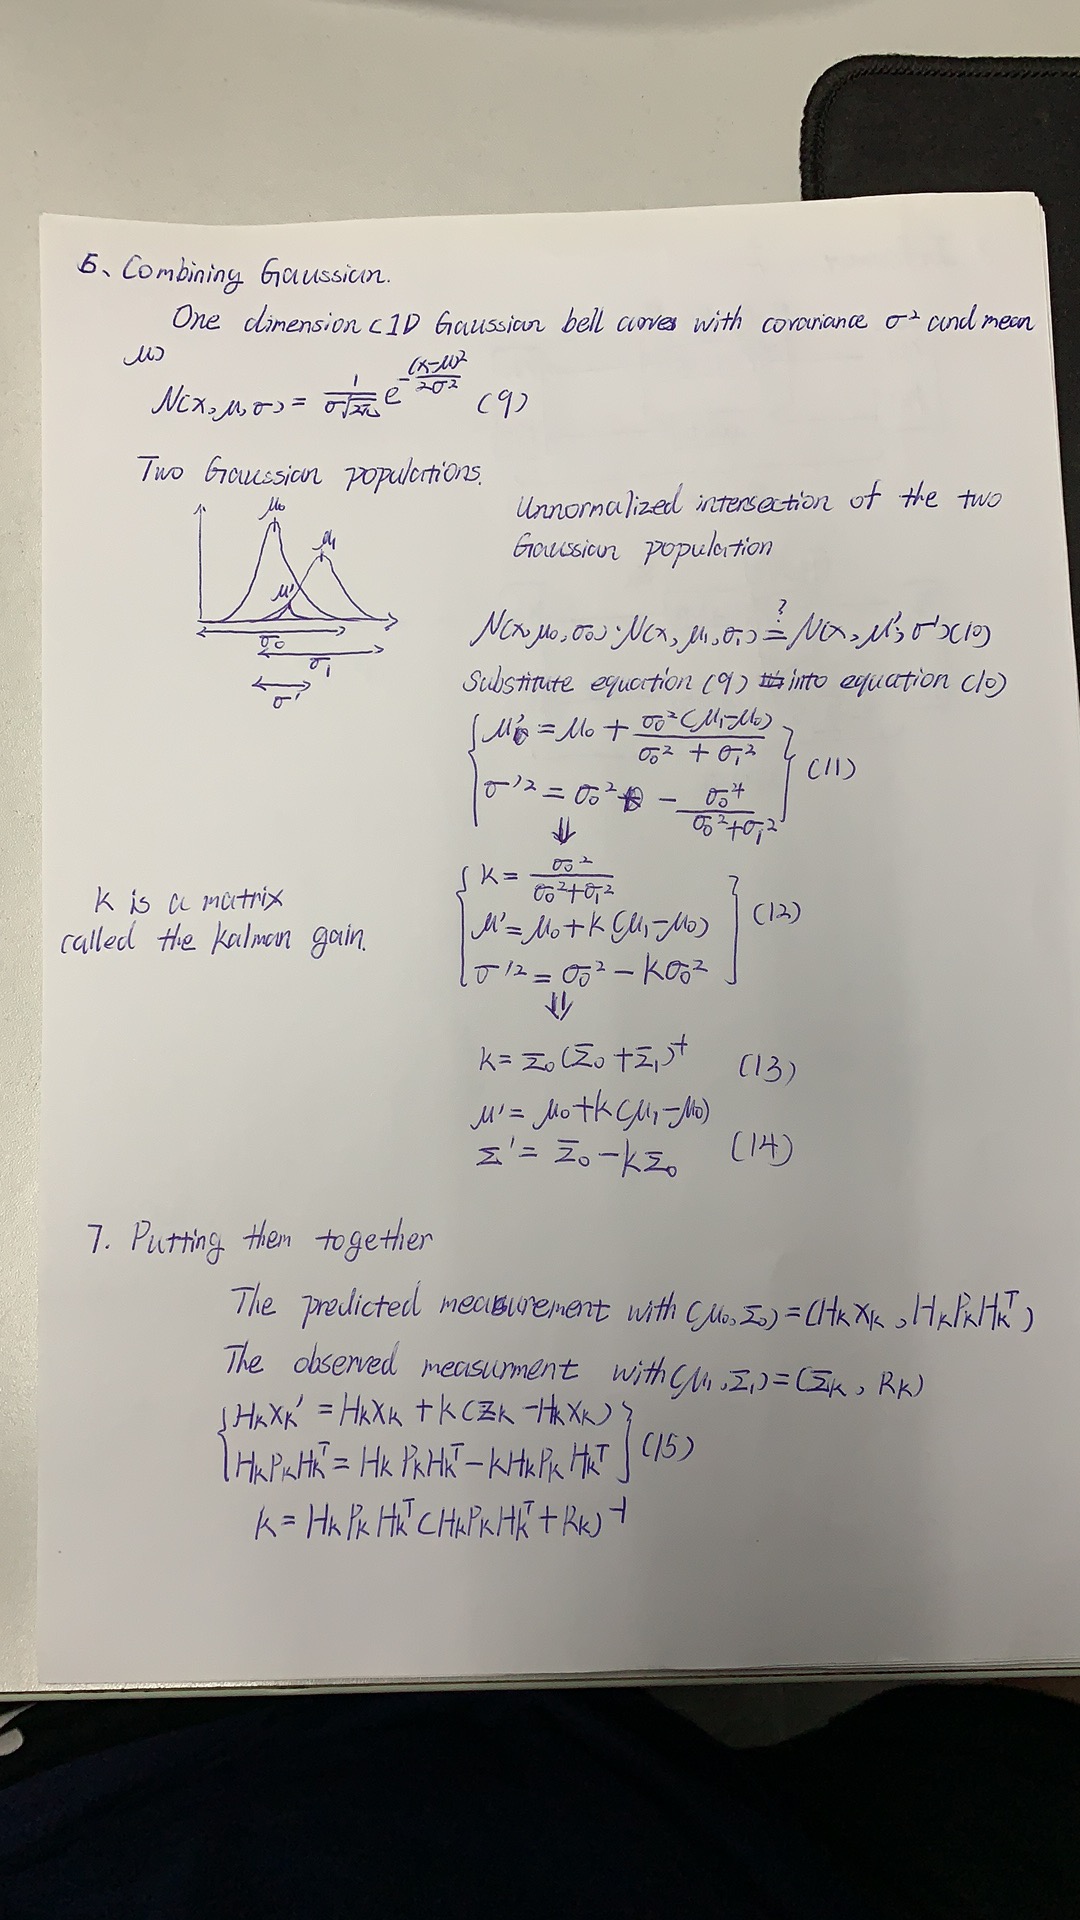 6、Combining Gaussian.
One dimension (1D Gaussian bell curves with covariance σ² and mean
μ)
N(x, μ, σ) = \frac{1}{σ\sqrt{2π}} e^{-\frac{(x-μ)²}{2σ²}} (9)
Two Gaussian populations.
μ₀
μ₁
μ'
σ₀
σ₁
σ'
Unnormalized intersection of the two
Gaussian population
N(x, μ₀, σ₀)·N(x, μ₁, σ₁) \overset{?}{=} N(x, μ', σ') (10)
Substitute equation (9) into equation (10)
{ μ' = μ₀ + \frac{σ₀²(μ₁-μ₀)}{σ₀² + σ₁²}
σ'² = σ₀² - \frac{σ₀⁴}{σ₀²+σ₁²} } (11)
⇓
{ k = \frac{σ₀²}{σ₀²+σ₁²}
μ' = μ₀ + k(μ₁-μ₀)
σ'² = σ₀² - kσ₀² } (12)
k is a matrix
called the kalman gain.
⇓
k = Σ₀(Σ₀ + Σ₁)⁻¹ (13)
μ' = μ₀ + k(μ₁-μ₀)
Σ' = Σ₀ - kΣ₀ (14)
7. Putting them together
The predicted measurement with (μ₀, Σ₀) = (Hₖxₖ, HₖPₖHₖᵀ)
The observed measurment with (μ₁, Σ₁) = (zₖ, Rₖ)
{ Hₖxₖ' = Hₖxₖ + k(zₖ - Hₖxₖ)
HₖPₖHₖᵀ = HₖPₖHₖᵀ - kHₖPₖHₖᵀ } (15)
k = HₖPₖHₖᵀ(HₖPₖHₖᵀ + Rₖ)⁻¹